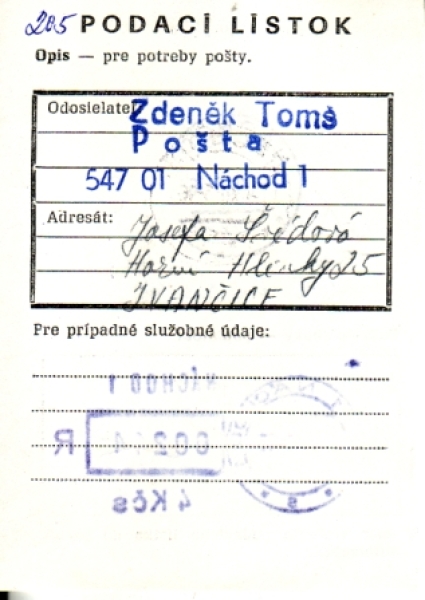 205 PODACÍ LÍSTOK
Opis — pre potreby pošty.
Odosielateľ
Zdeněk Tomš
Pošta
547 01 Náchod 1
Adresát:
Josefa
Horní Hlinky 25
IVANČICE
Pre prípadné služobné údaje:
NÁCHOD 1
R
4 Kčs